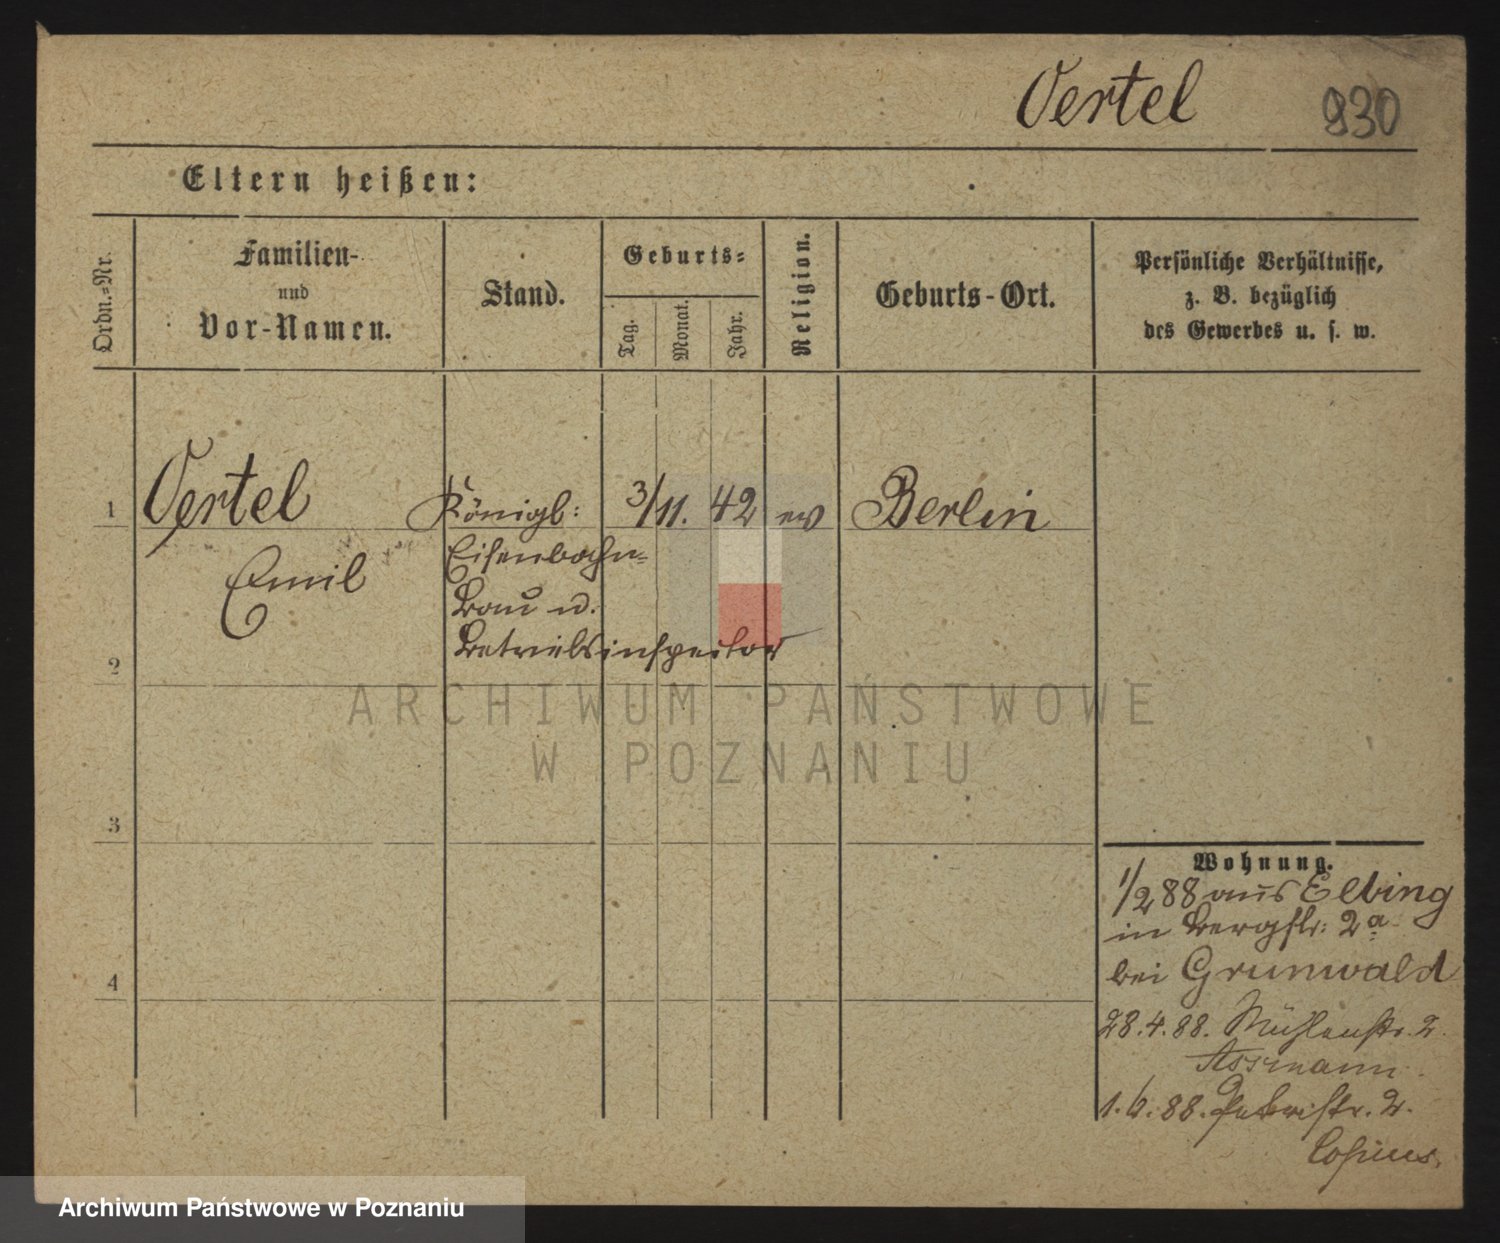 Oertel
930
Eltern heißen:
Ordn.-Nr.
Familien-
und
Vor-Namen.
Stand.
Geburts-
Tag.
Monat.
Jahr.
Religion.
Geburts-Ort.
Persönliche Verhältnisse,
z. B. bezüglich
des Gewerbes u. s. w.
1
Oertel
Königl:
3/11. 42
ev
Berlin
Emil
Eisenbahn-
Bau u.
Betriebsinspector
2
ARCHIWUM PAŃSTWOWE
W POZNANIU
3
Wohnung.
1/2 88 aus Elbing
in Bergstr: 2a
bei Grunwald
4
28.4.88. Mühlenstr. 2.
Assmann.
1.6.88. Petristr. 2.
Archiwum Państwowe w Poznaniu